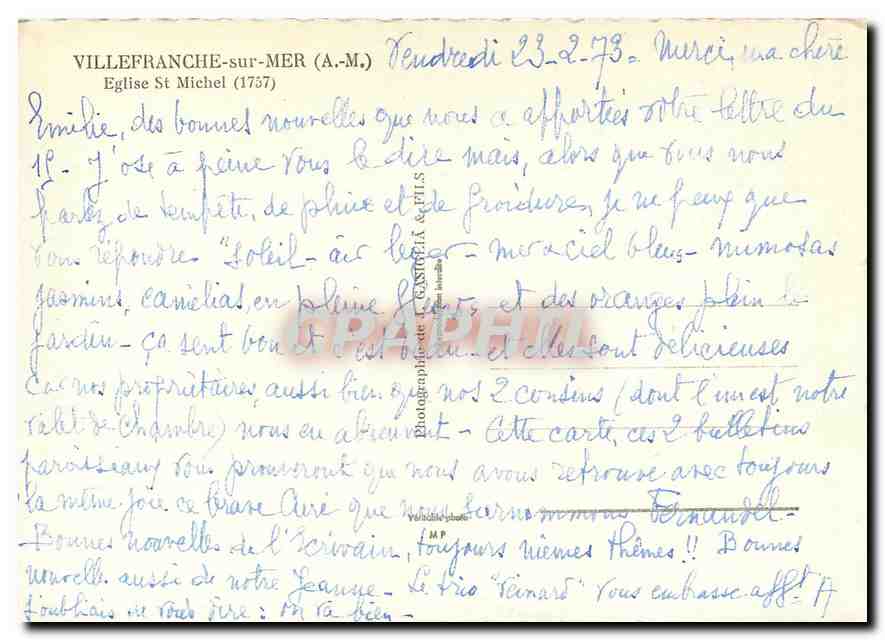 VILLEFRANCHE-sur-MER (A.-M.)
Eglise St Michel (1757)
Vendredi 23-2-73 - Merci, ma chère
Emilie, des bonnes nouvelles que nous a apportées votre lettre du
19 - J'ose à peine vous le dire mais, alors que vous nous
parlez de tempête, de pluie et de froidures, je ne peux que
vous répondre "Soleil - air léger - mer et ciel bleus - mimosas
jasmins, camélias, en pleine fleurs, et des oranges plein le
jardin - ça sent bon et c'est beau - et elles sont délicieuses
car nos propriétaires, aussi bien que nos 2 cousins (dont l'un est notre
valet de chambre) nous en abreuvent - Cette carte, ces 2 bulletins
paroissiaux vous prouveront que nous avons retrouvé avec toujours
la même joie ce brave Curé que nous surnommons Fernandel -
Bonnes nouvelles de l'Ecrivain, toujours mêmes thèmes !! Bonnes
nouvelles aussi de notre Jeanne - Le trio "Reinard" vous embrasse afft A
J'oubliais de vous dire : on va bien -
Photographie de J. GASIGLIA & FILS
Reproduction interdite
Véritable photo
M P
CPAPHIL